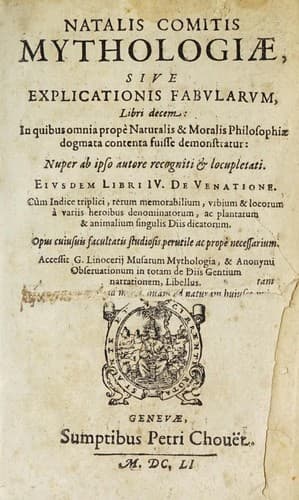 NATALIS COMITIS
MYTHOLOGIÆ,
SIVE
EXPLICATIONIS FABVLARVM,
Libri decem:
In quibus omnia propè Naturalis & Moralis Philosophiæ
dogmata contenta fuisse demonstratur:
Nuper ab ipso autore recogniti & locupletati.
EIVSDEM LIBRI IV. DE VENATIONE.
Cùm Indice triplici, rerum memorabilium, vrbium & locorum
à variis heroibus denominatorum, ac plantarum
& animalium singulis Diis dicatorum.
Opus cuiusuis facultatis studiosis perutile ac propè necessarium.
Accessit G. Linocerij Musarum Mythologia, & Anonymi
Obseruationum in totam de Diis Gentium
narrationem, Libellus.
tam
ad naturam huius
GENEVÆ,
Sumptibus Petri Chouët.
M. DC. LI